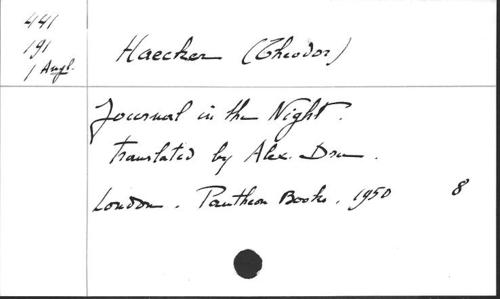 441
191
1 Angl.
Haecker (Theodor)
Journal in the Night.
Translated by Alex. Dru.
London. Pantheon Books. 1950 8